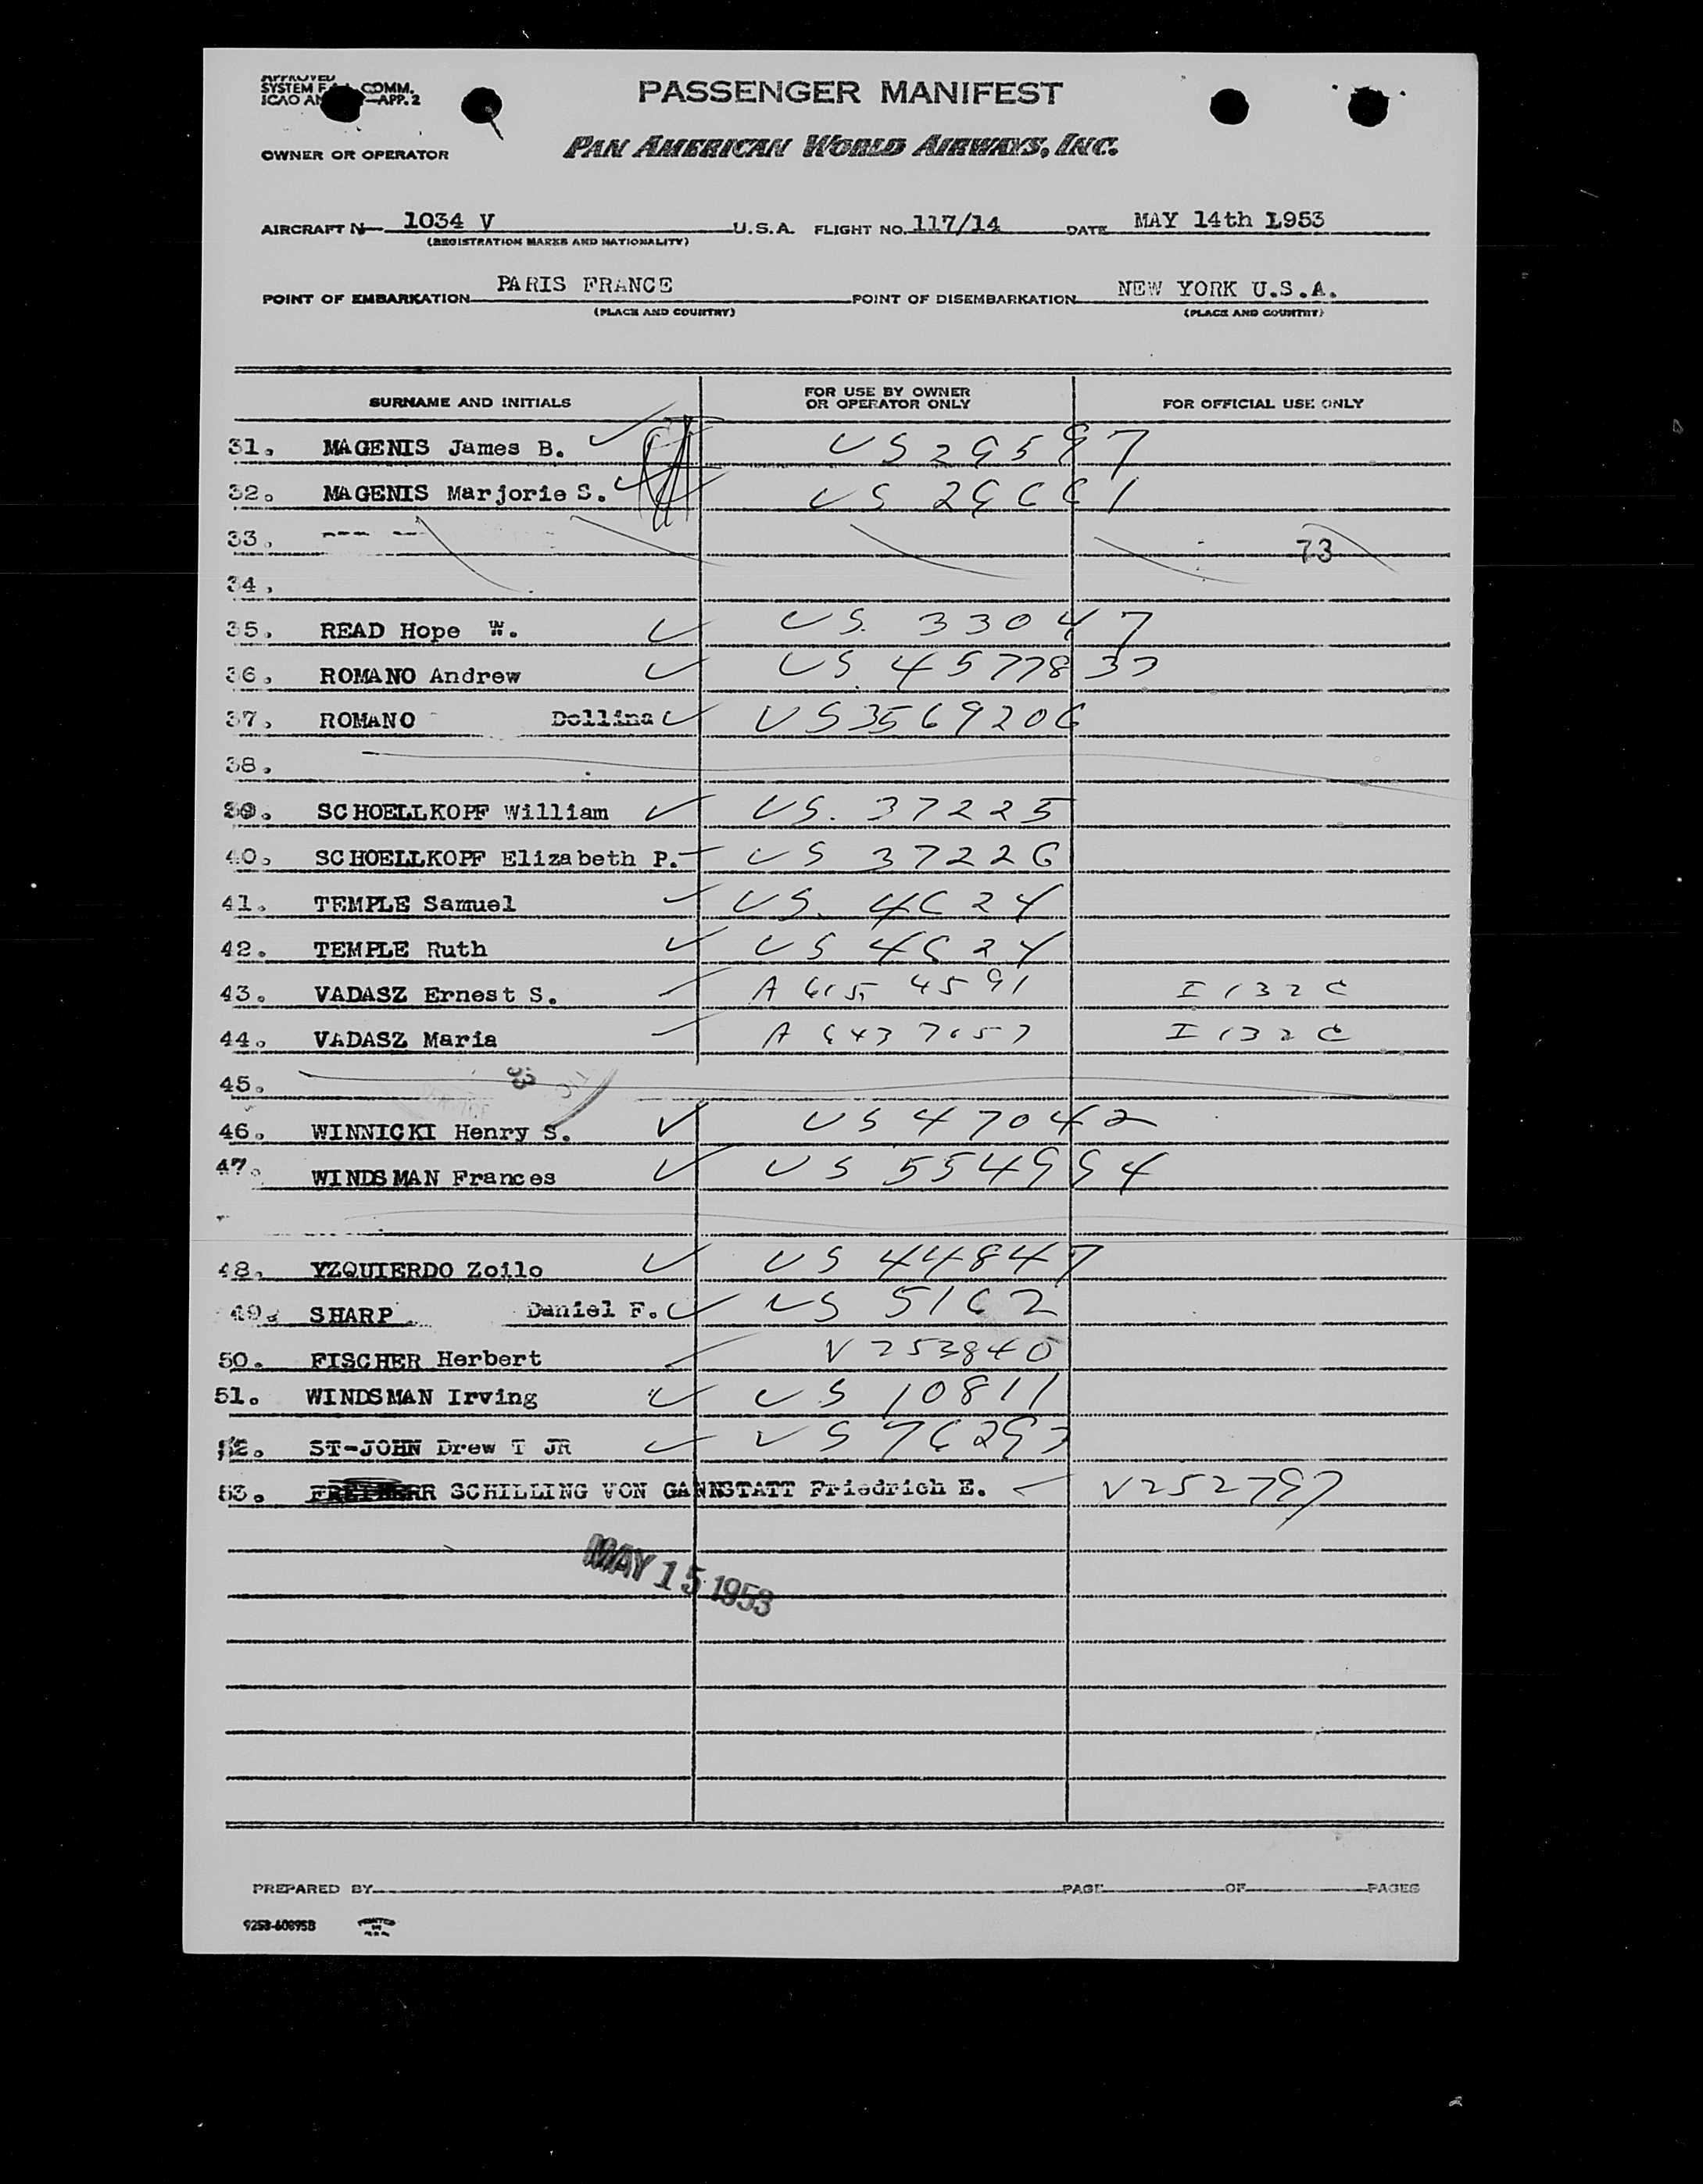 APPROVED
SYSTEM F COMM.
ICAO AN APP. 2
PASSENGER MANIFEST
OWNER OR OPERATOR
PAN AMERICAN WORLD AIRWAYS, INC.
AIRCRAFT N 1034 V U.S.A. FLIGHT NO. 117/14 DATE MAY 14th 1953
(REGISTRATION MARKS AND NATIONALITY)
POINT OF EMBARKATION PARIS FRANCE POINT OF DISEMBARKATION NEW YORK U.S.A.
(PLACE AND COUNTRY) (PLACE AND COUNTRY)
SURNAME AND INITIALS FOR USE BY OWNER OR OPERATOR ONLY FOR OFFICIAL USE ONLY
31. MAGENIS James B. US 29597
32. MAGENIS Marjorie S. US 29661
33. 73
34.
35. READ Hope W. US. 33047
36. ROMANO Andrew US. 4577833
37. ROMANO Dollina US 3569206
38.
39. SCHOELLKOPF William US. 37225
40. SCHOELLKOPF Elizabeth P. US 37226
41. TEMPLE Samuel US. 4624
42. TEMPLE Ruth US 4624
43. VADASZ Ernest S. A 615 4591 I 132 C
44. VADASZ Maria A 643 7657 I 132 C
45.
46. WINNICKI Henry S. US 47042
47. WINDSMAN Frances US 554994
48. YZQUIERDO Zoilo US 44847
49. SHARP Daniel F. US 5162
50. FISCHER Herbert V 253840
51. WINDSMAN Irving US 10811
52. ST-JOHN Drew T JR US 76293
53. SCHILLING VON GANNSTATT Friedrich E. V252797
MAY 15 1953
PREPARED BY PAGE OF PAGES
9253-60895B PRINTED IN U.S.A.